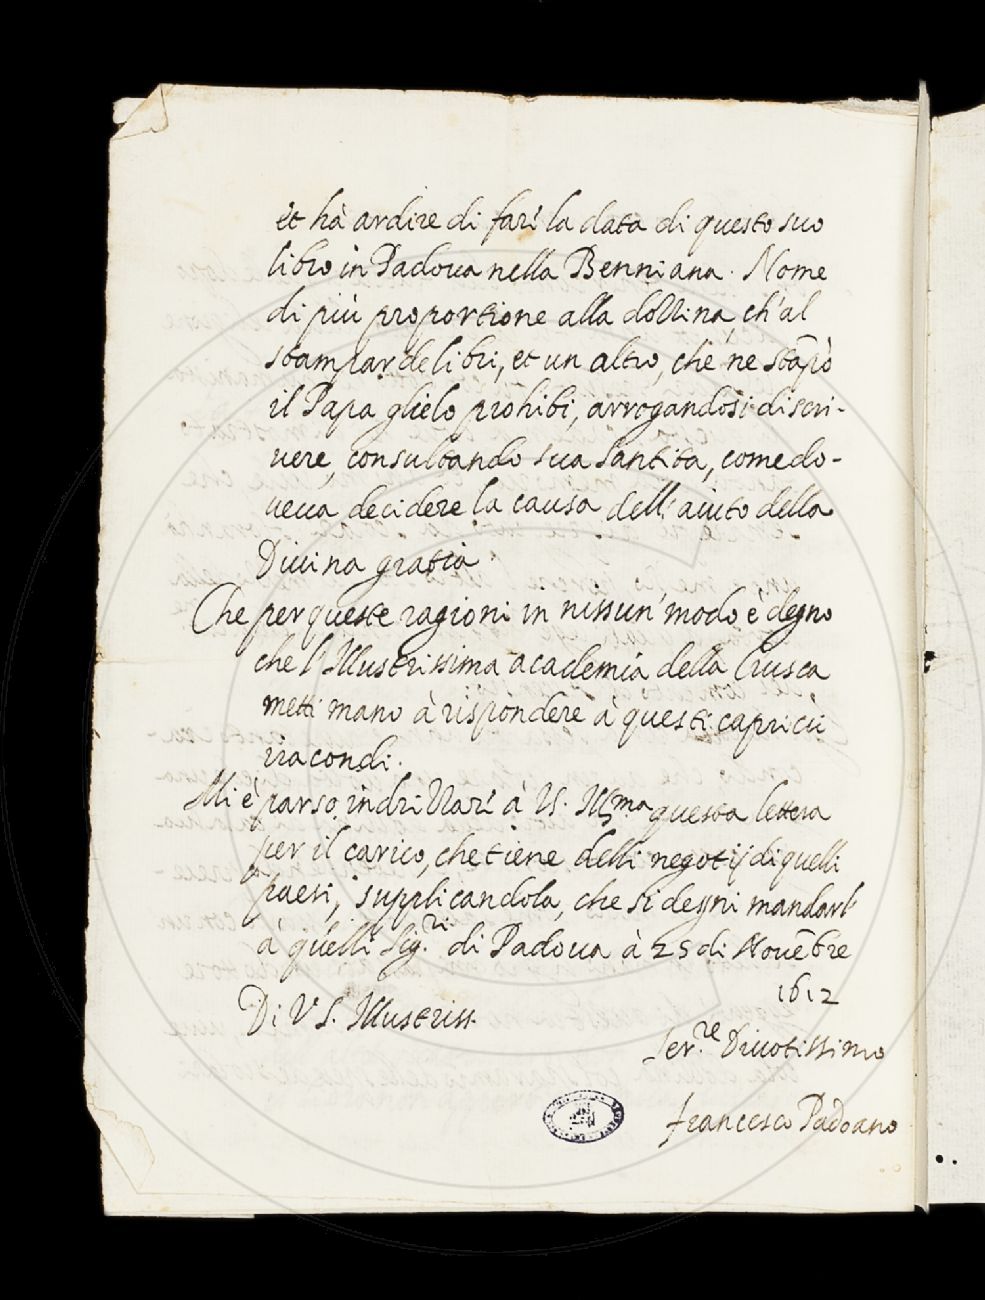 et hà ardire di farĺ la data di questo suo
libro in Padova nella Benniana. Nome
di più proportione alla dottrina, ch'al
stampar de libri, et un altro, che ne stāpò
il Papa glielo prohibi, arrogandosi di scri-
vere, consultando sua Santità, come do-
veva decidere la causa dell'aiuto della
Divina gratia
Che per queste ragioni in nissun' modo è degno
che l'Illustrissima academia della Crusca
metti mano à rispondere à questi capricii
iracondi.
Mi è parso indrizzarĺ à V.S. Ill.ma questa lettera
per il carico, che tiene delli negotij di quelli
paesi, supplicandola, che si degni mandarĺ
à quelli Sig.ri di Padova à 25 di Novēbre
1612
Di V.S. Illustriss.
Ser.re Divotissimo
Francesco Padoano